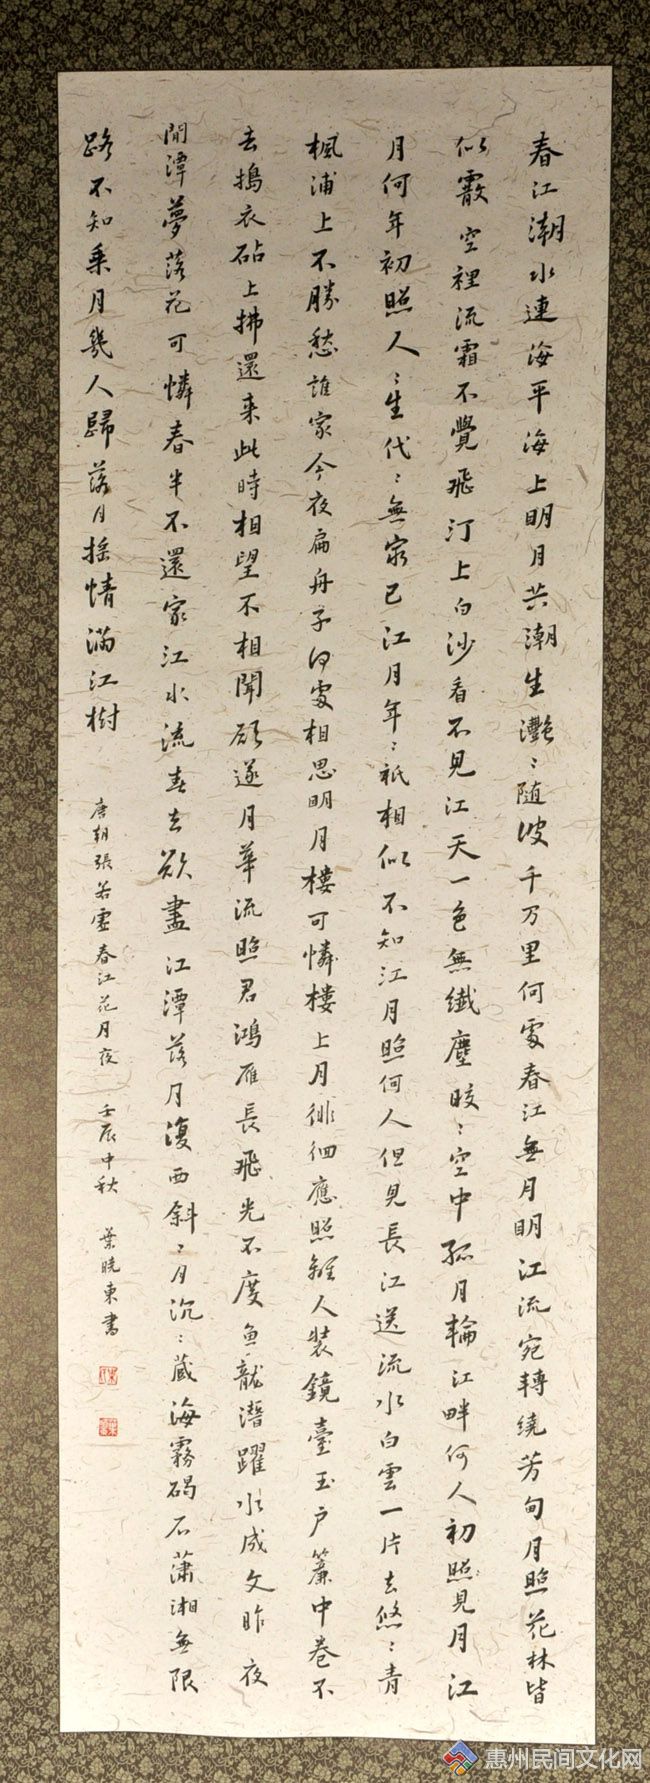 春江潮水連海平海上明月共潮生灩〻随波千万里何處春江無月明江流宛轉繞芳甸月照花林皆
似霰空裡流霜不覺飛汀上白沙看不見江天一色無纖塵皎〻空中孤月輪江畔何人初照見月江
月何年初照人〻生代〻無窮已江月年〻祇相似不知江月照何人但見長江送流水白雲一片去悠〻青
楓浦上不勝愁誰家今夜扁舟子何處相思明月樓可憐樓上月徘徊應照離人装鏡臺玉户簾中卷不
去搗衣砧上拂還来此時相望不相聞願逐月華流照君鴻雁長飛光不度魚龍潛躍水成文昨夜
閒潭夢落花可憐春半不還家江水流春去欲盡江潭落月復西斜〻月沉〻藏海霧碣石瀟湘無限
路不知乘月幾人歸落月摇情滿江樹
唐朝張若虚春江花月夜 壬辰中秋 葉曉東書
惠州民间文化网